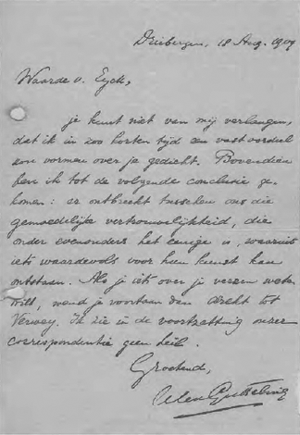 Driebergen, 18 Aug. 1909
Waarde v. Eyck,
je kunt niet van mij verlangen,
dat ik in zoo korten tijd een vast oordeel
kan vormen over je gedicht. Bovendien
ben ik tot de volgende conclusie ge-
komen: er ontbreekt tusschen ons die
gemoedelijke vertrouwelijkheid, die
onder evenouders het eenige is, waaruit
iets waardevols voor hun kunst kan
ontstaan. Als je iets over je verzen weten
wilt, wend je voortaan dan direct tot
Verwey. Ik zie in de voortzetting onzer
correspondentie geen heil.
Groetend,
Alex Gutteling